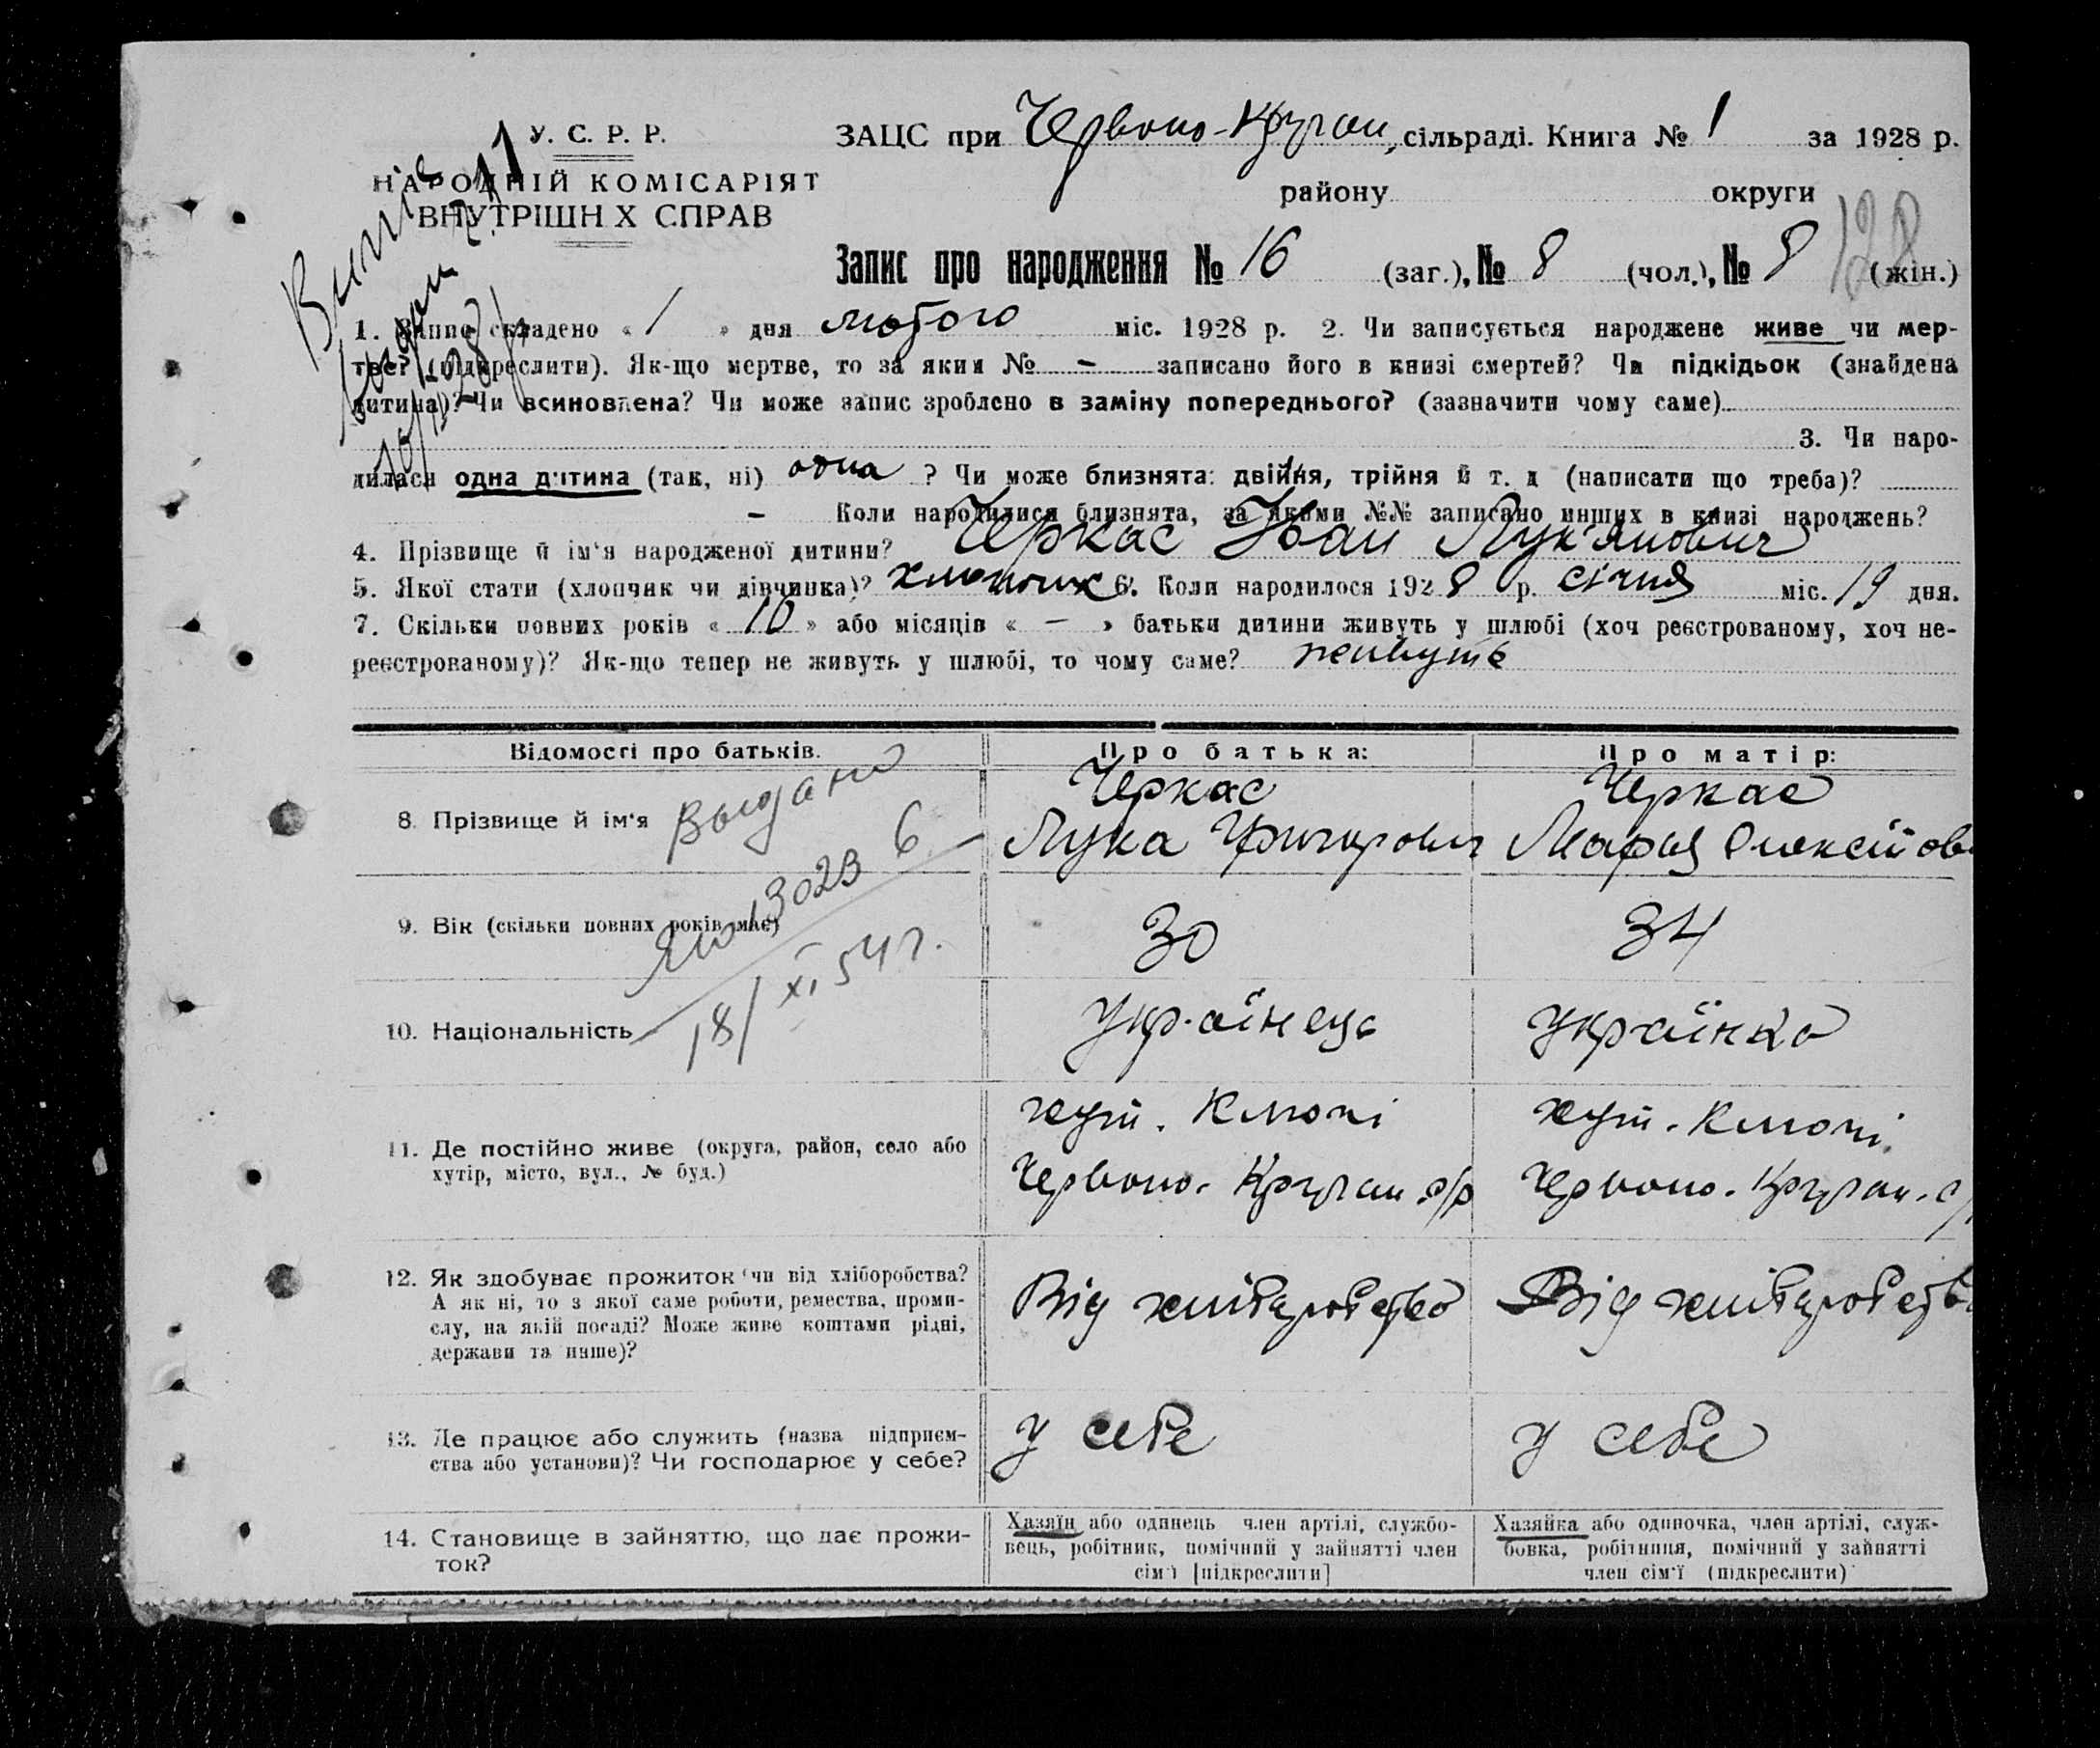 У. С. Р. Р.
НАРОДНІЙ КОМІСАРІЯТ
ВНУТРІШН Х СПРАВ
ЗАЦС при Червоно-Кру сільраді. Книга № 1 за 1928 р.
району округи
128
Запис про народження № 16 (заг.), № 8 (чол.), № 8 (жін.)
1. складено « 1 » дня лютого міс. 1928 р. 2. Чи записується народжене живе чи мер-
тве? (підкреслити). Як-що мертве, то за яким № — записано його в книзі смертей? Чи підкідьок (знайдена
дитина)? Чи всиновлена? Чи може запис зроблено в заміну попереднього? (зазначити чому саме)
3. Чи наро-
дилася одна дитина (так, ні) одна ? Чи може близнята: двійня, трійня й т. д (написати що треба)?
— Коли народилися близнята, за якими №№ записано инших в книзі народжень?
4. Прізвище й ім'я народженої дитини? Черкас Іван Лук'янович
5. Якої стати (хлопчик чи дівчинка)? хлопчик 6. Коли народилося 1928 р. січня міс. 19 дня.
7. Скільки повних років « 10 » або місяців « — » батьки дитини живуть у шлюбі (хоч реєстрованому, хоч не-
реєстрованому)? Як-що тепер не живуть у шлюбі, то чому саме? живуть
Відомості про батьків. Про батька: Про матір:
8. Прізвище й ім'я
Черкас
Лука Григорович
Черкас
Мария Олексійов
9. Вік (скільки повних років має)
30
34
10. Національність
Українець
Українка
18/XI 54 г.
11. Де постійно живе (округа, район, село або
хутір, місто, вул., № буд.)
хут.
Червоно-
с/р
хут.
Червоно-
12. Як здобуває прожиток чи від хліборобства?
А як ні, то з якої саме роботи, ремества, проми-
слу, на якій посаді? Може живе коштами рідні,
держави та инше)?
Від хліборобства
Від хліборобств
13. Де працює або служить (назва підприєм-
ства або установи)? Чи господарює у себе?
у себе
у себе
14. Становище в зайняттю, що дає прожи-
ток?
Хазяїн або одинець член артілі, службо-
вець, робітник, помічний у зайнятті член
сім'ї [підкреслити]
Хазяйка або одиночка, член артілі, служ-
бовка, робітниця, помічний у зайнятті
член сім'ї (підкреслити)